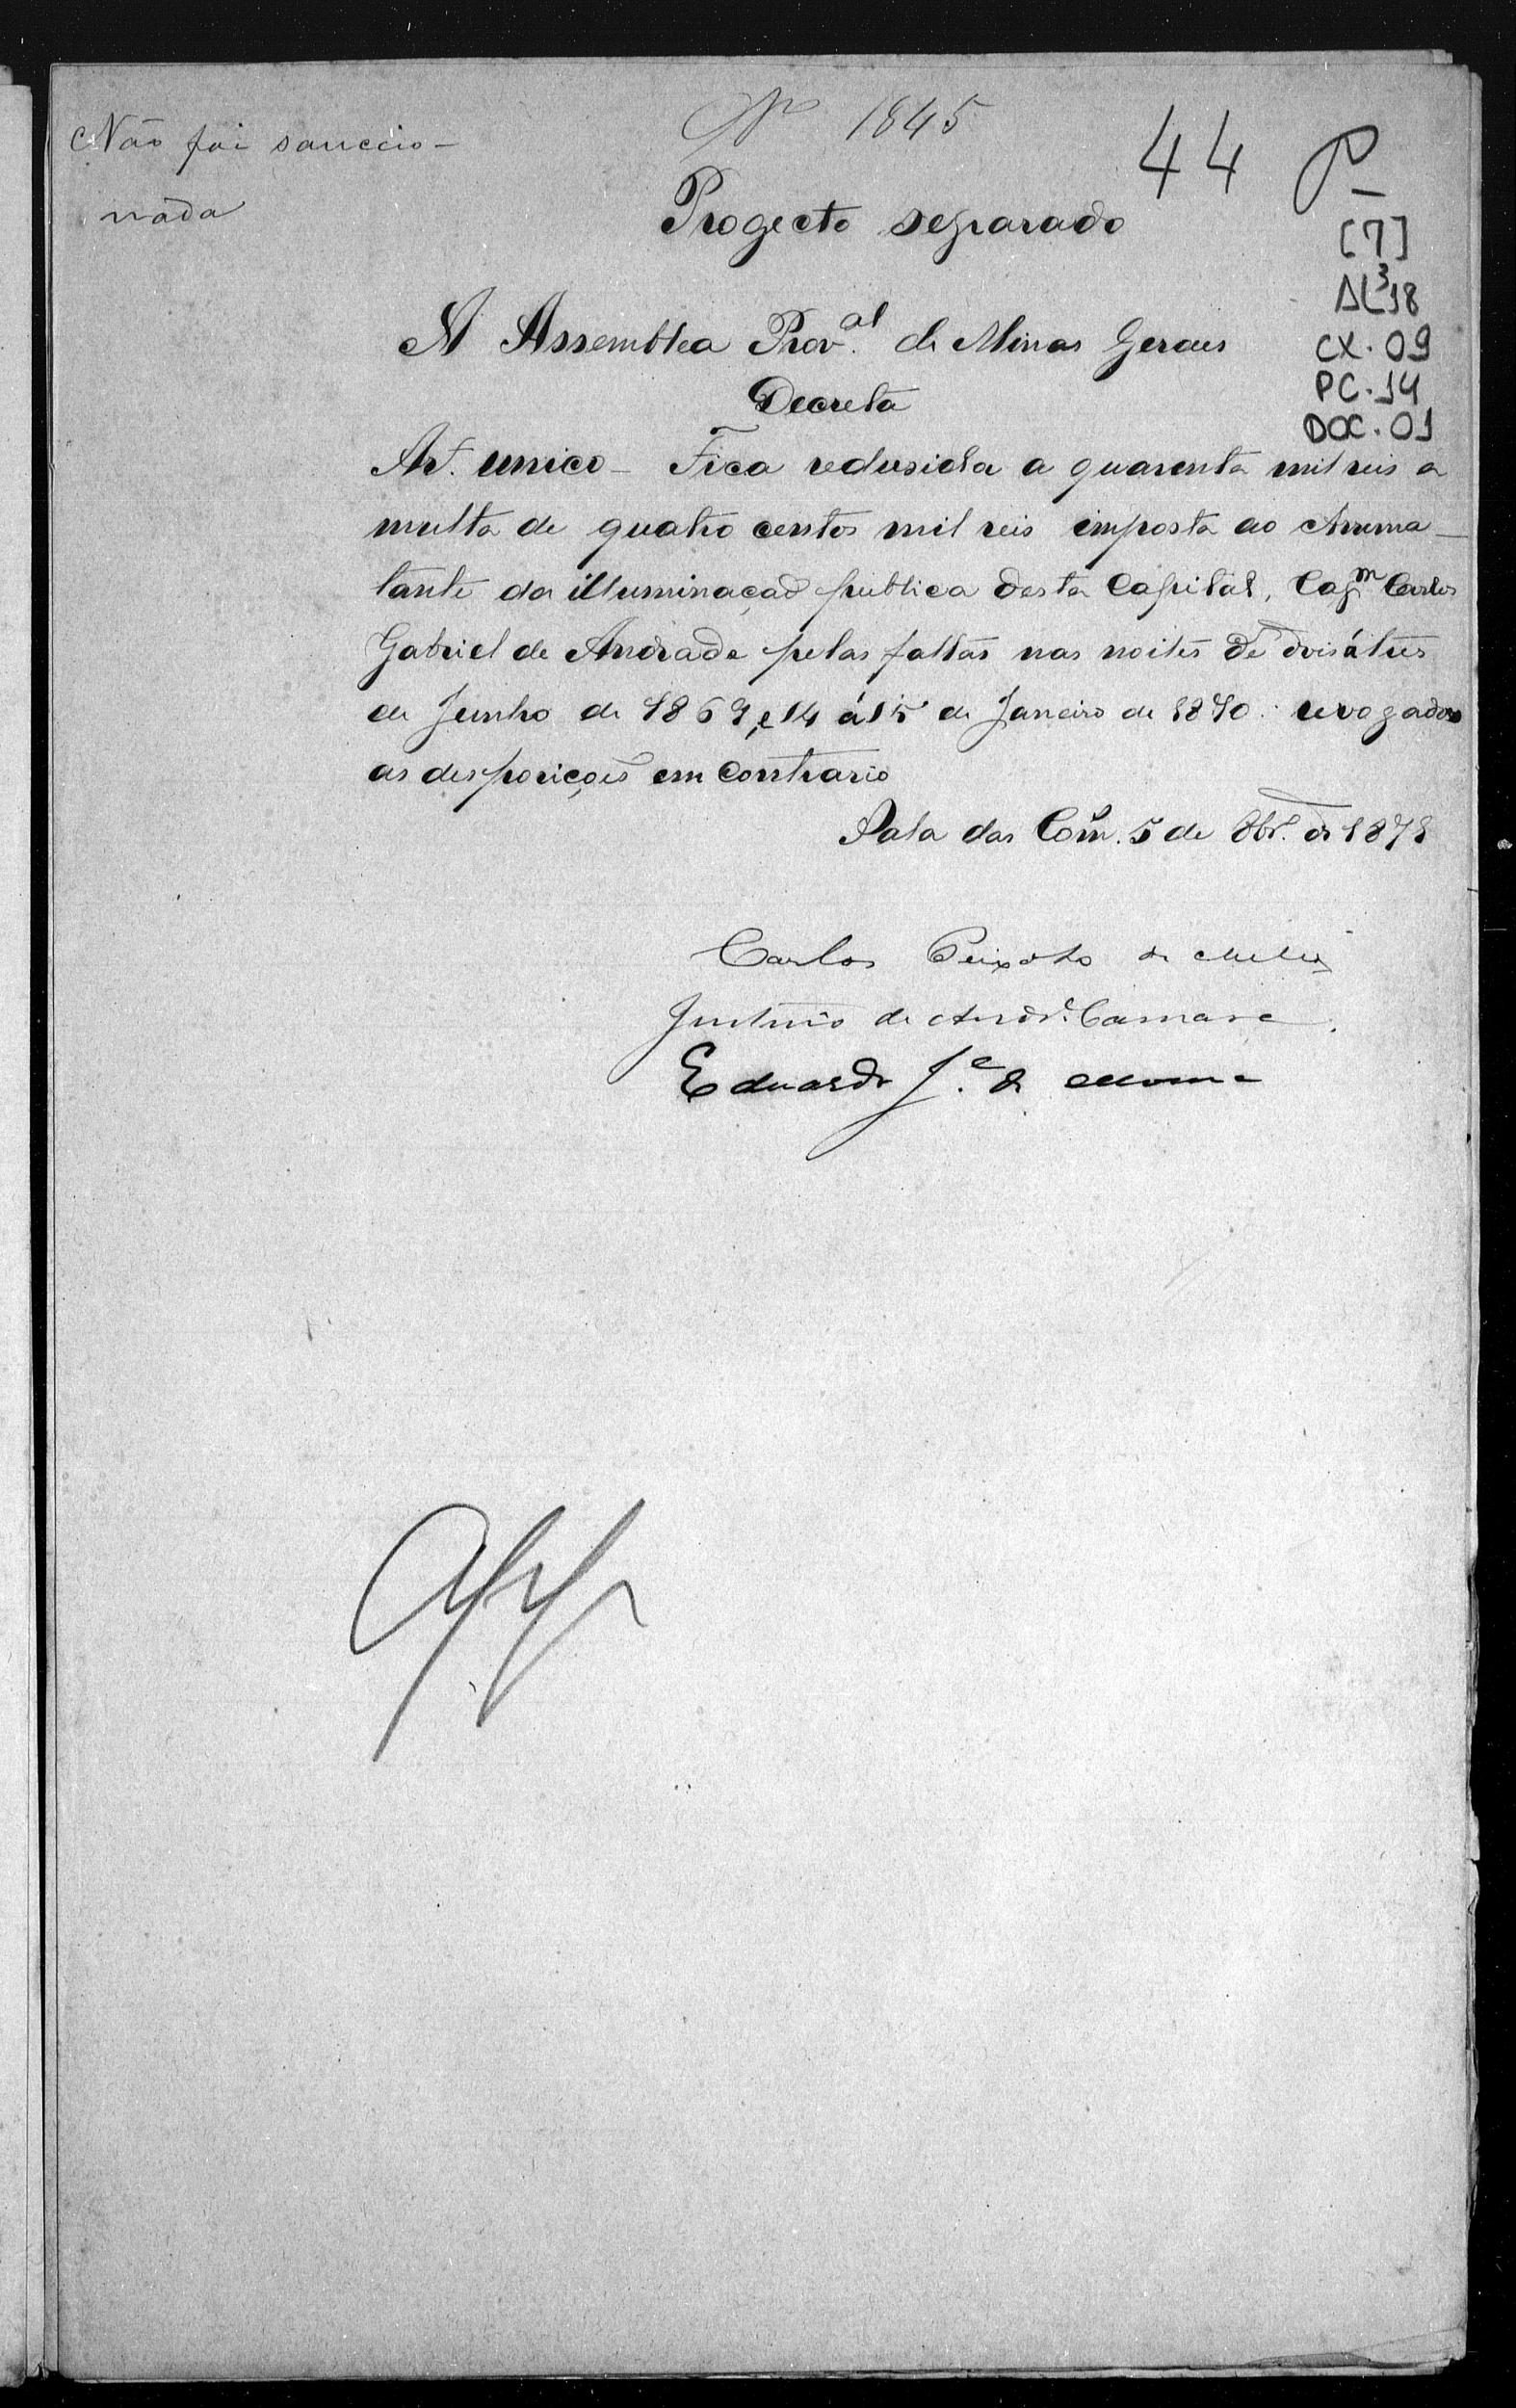 Não foi sanccio-
nada
Nº 1845
44 P
Progecto separado
[7]
AL³18
CX.09
PC.14
DOC.01
A Assemblea Prov.al de Minas Geraes
Decreta
Art. unico - Fica redusida a quarenta mil reis a
multa de quatro centos mil reis imposta ao Arrema-
tante da illuminação publica desta Capital, Capm Carlos
Gabriel de Andrade pelas faltas nas noites de dois á tres
de Junho de 1869, e 14 á 15 de Janeiro de 1870: revogadas
as desposições em Contrario
Sala das Com. 5 de 8br. de 1871
Carlos Peixoto de Mello
Justino de Andr.e Camara
Eduardo J.e de Moura